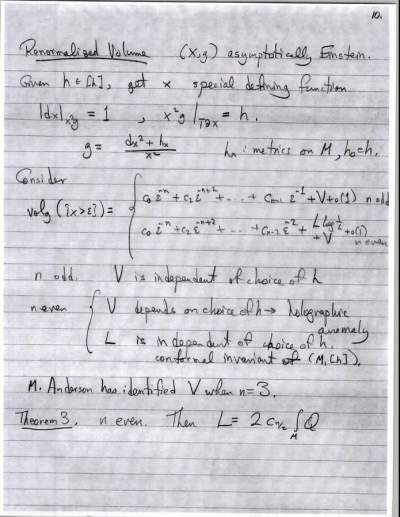 10.
Renormalized Volume (X,g) asymptotically Einstein.
Given h ∈ [h], get x special defining function
|dx|_{x²g} = 1 , x²g|_{T∂X} = h.
g = (dx² + h_x)/x² h_x : metrics on M, h_0 = h.
Consider
vol_g({x>ε}) = { c_0 ε^{-n} + c_2 ε^{-n+2} + ... + c_{n-1} ε^{-1} + V + o(1) n odd
c_0 ε^{-n} + c_2 ε^{-n+2} + ... + c_{n-2} ε^{-2} + L log 1/ε + V + o(1) n even
n odd. V is independent of choice of h
n even { V depends on choice of h → holographic anomaly
L is independent of choice of h.
conformal invariant of (M,[h]).
M. Anderson has identified V when n=3.
Theorem 3. n even. Then L = 2 c_{n/2} ∫_M Q